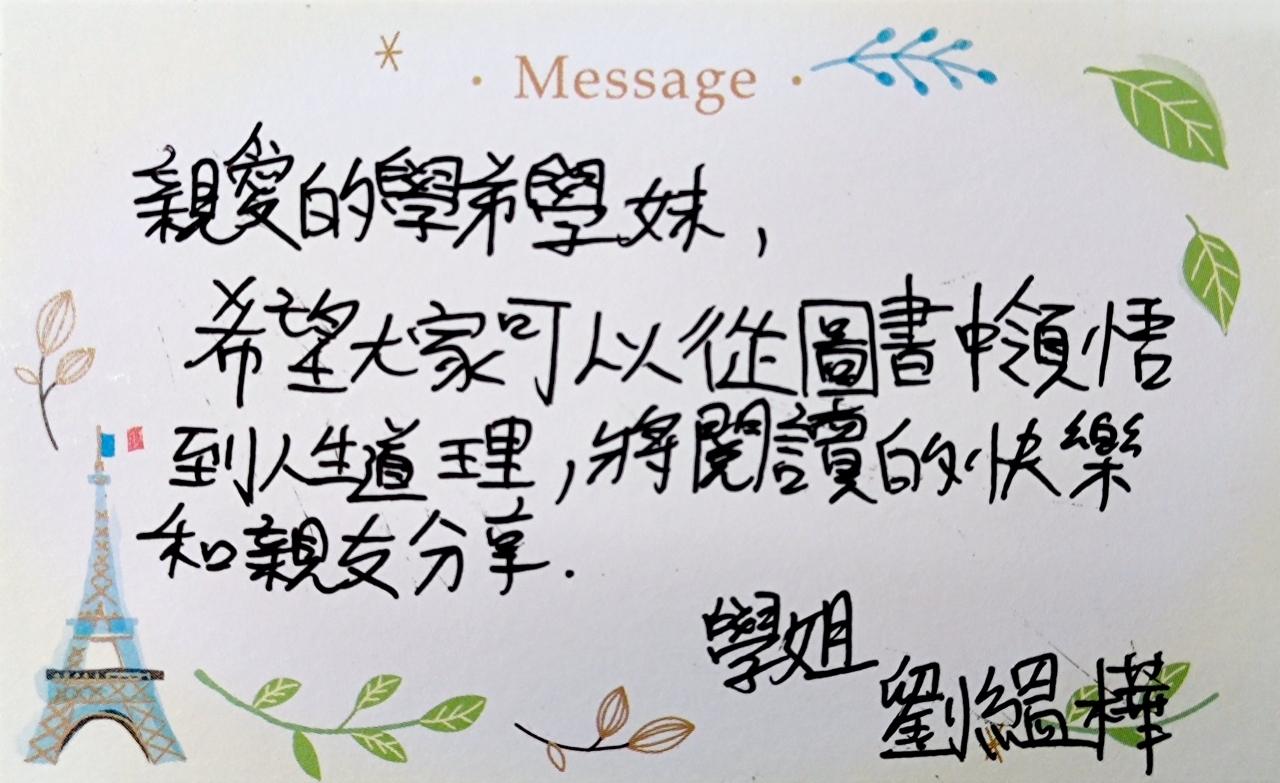 Message
親愛的學弟學妹,
希望大家可以從圖書中領悟
到人生道理,將閱讀的快樂
和親友分享.
學姐
劉縕樺